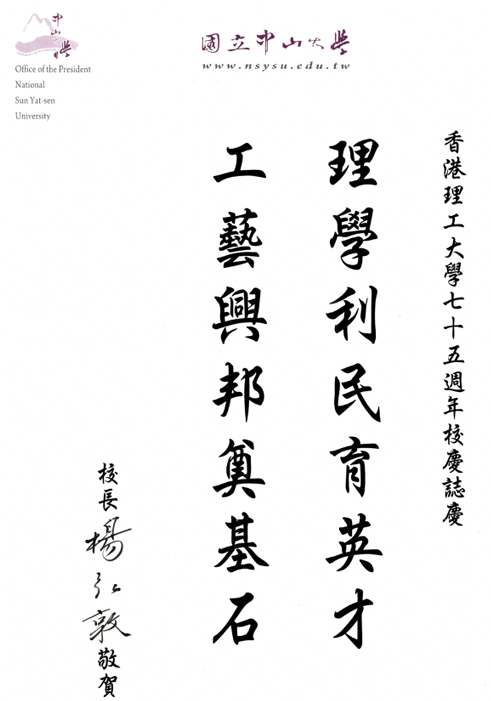 中山大學
Office of the President
National
Sun Yat-sen
University
國立中山大學
www.nsysu.edu.tw
香港理工大學七十五週年校慶誌慶
理學利民育英才
工藝興邦奠基石
校長 楊弘敦 敬賀